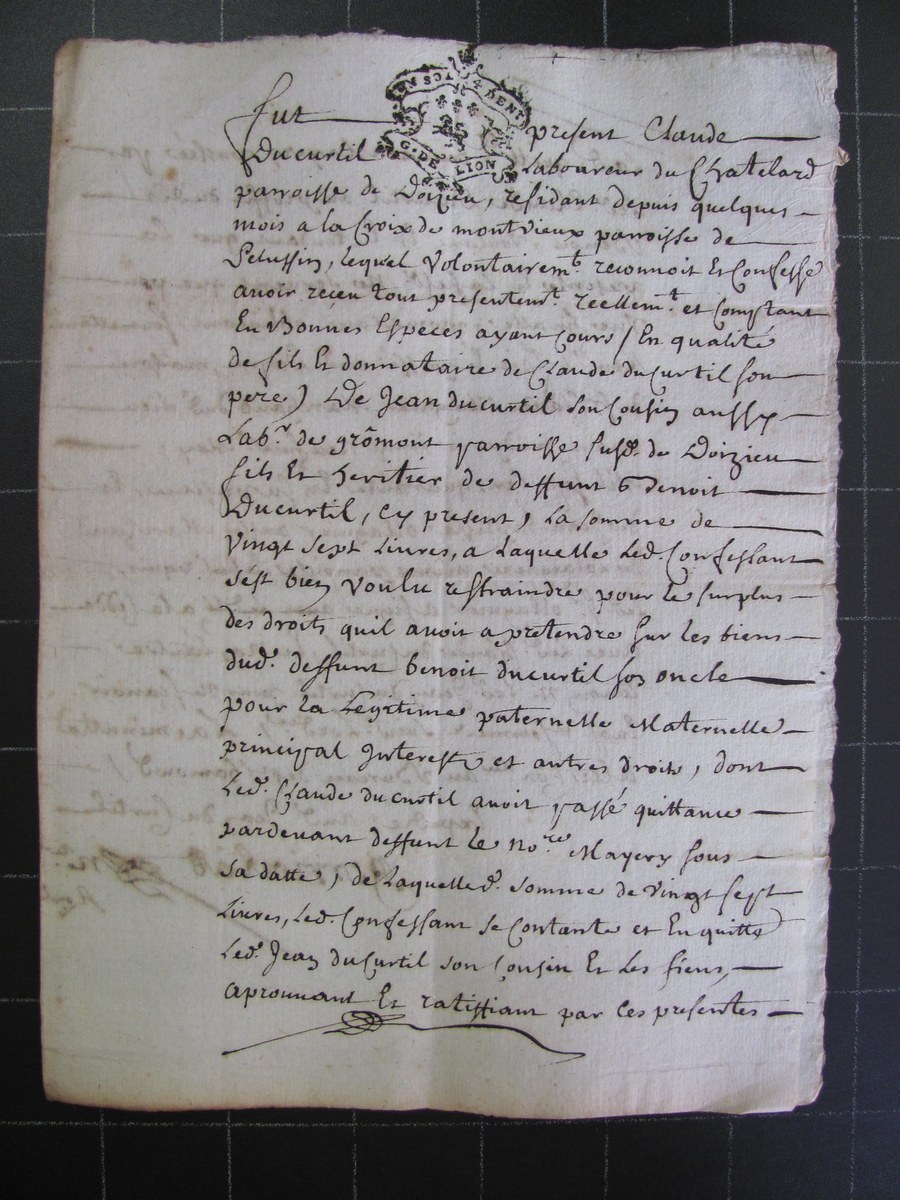 fut present Claude
Ducurtil Laboureur du Chatelard
parroisse de Doizieu, residant depuis quelques
mois a la Croix de montvieux parroisse de
Pelussin, lequel Volontairemt. reconnoit Et Confesse
avoir receu tout presentemt. reellemt. et Comptant
En Bonnes Especes ayant Cours (En qualité
de fils Et donnataire de Claude ducurtil son
pere) De Jean ducurtil son Cousin aussy
Labr. de grômont parroisse susd. de Doizieu
fils Et heritier de deffunt benoit
Ducurtil, cy present, La somme de
Vingt sept Livres, a Laquelle Led. Confessant
s'est bien voulu restraindre pour le surplus
des droits quil avoit a pretendre sur les biens
dud. deffunt benoit ducurtil son oncle
pour la Legitime paternelle Maternelle
principal Interest et autres droits, dont
Led. Claude ducurtil avoit passé quittance
pardevant deffunt le nore. Mayery sous
sa datte, de Laquelle d. somme de vingt sept
Livres, Led. Confessant se Contante et En quitte
Led. Jean ducurtil son Cousin Et les siens,
aprouvant Et ratiffiant par Ces presentes
G. DE LION
4 DEN